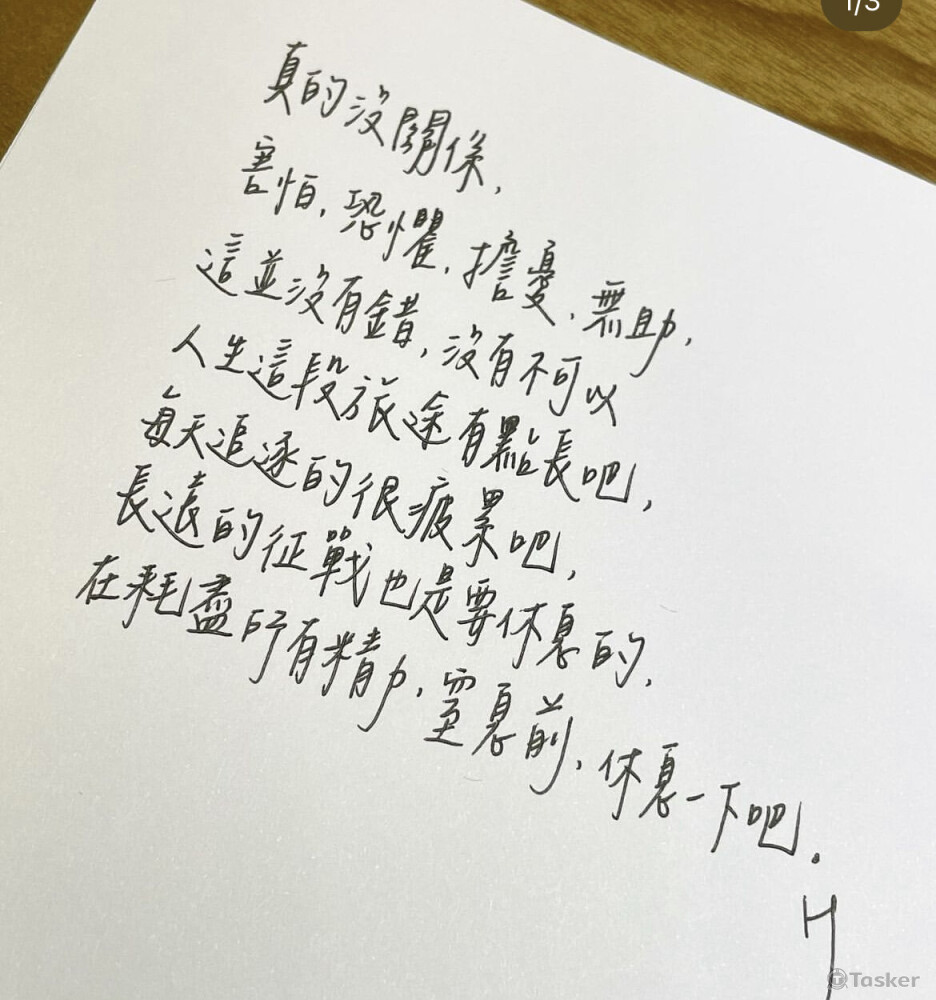 1/3
真的沒關係,
害怕,恐懼,擔憂,無助,
這並沒有錯,沒有不可以
人生這段旅途有點長吧,
每天追逐的很疲累吧,
長遠的征戰也是要休息的,
在耗盡所有精力,窒息前,休息一下吧。
H
Tasker